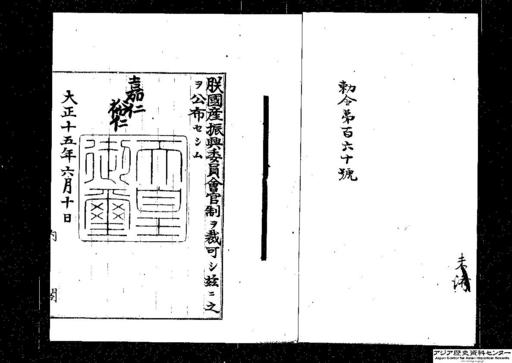 勅令第百六十號
朕國産振興委員會官制ヲ裁可シ茲ニ之
ヲ公布セシム
嘉仁
裕仁
天皇
御璽
大正十五年六月十日
内閣
アジア歴史資料センター
Japan Center for Asian Historical Records